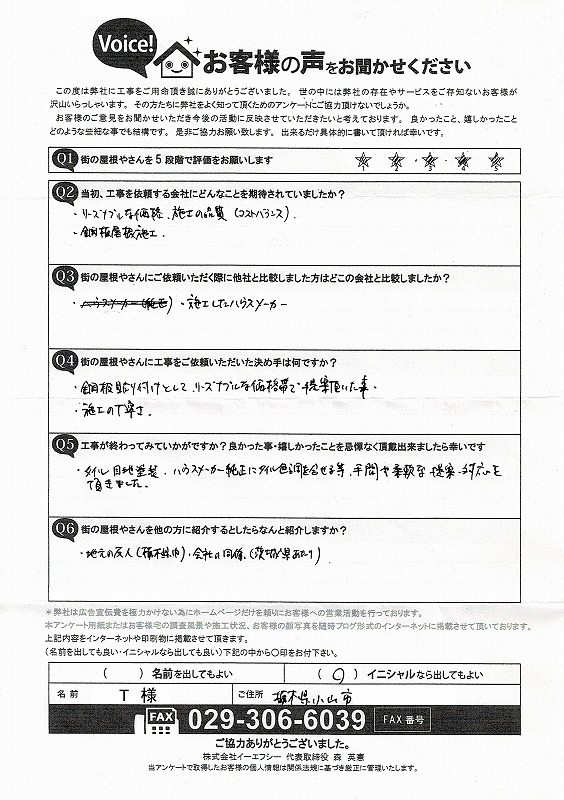 Voice!
お客様の声をお聞かせください
この度は弊社に工事をご用命頂き誠にありがとうございました。 世の中には弊社の存在やサービスをご存知ないお客様が
沢山いらっしゃいます。 その方たちに弊社をよく知って頂くためのアンケートにご協力頂けないでしょうか。
お客様のご意見をお聞かせいただき今後の活動に反映させていただきたいと考えております。 良かったこと、嬉しかったこと
どのような些細な事でも結構です。 是非ご協力お願い致します。 出来るだけ具体的に書いて頂ければ幸いです。
Q1 街の屋根やさんを5段階で評価をお願いします
1 2 3 4 5
Q2 当初、工事を依頼する会社にどんなことを期待されていましたか?
・リーズナブルな価格、施工の品質(コストバランス)
・鋼板屋根施工.
Q3 街の屋根やさんにご依頼いただく際に他社と比較しました方はどこの会社と比較しましたか?
・施工したハウスメーカー
Q4 街の屋根やさんに工事をご依頼いただいた決め手は何ですか?
・鋼板貼り付けとして、リーズナブルな価格帯で提案頂いた事.
・施工の丁寧さ.
Q5 工事が終わってみていかがですか?良かった事・嬉しかったことを忌憚なく頂戴出来ましたら幸いです
・タイル目地塗装、ハウスメーカー純正にタイル色調を合せる等、手間や柔軟な提案・対応を
頂きました.
Q6 街の屋根やさんを他の方に紹介するとしたらなんと紹介しますか?
・地元の友人(栃木県内)・会社の同僚
*弊社は広告宣伝費を極力かけない為にホームページだけを頼りにお客様への営業活動を行っております。
本アンケート用紙またはお客様宅の調査風景や施工状況、お客様の顔写真を随時ブログ形式のインターネットに掲載させて頂いております。
上記内容をインターネットや印刷物に掲載させて頂きます。
(名前を出しても良い・イニシャルなら出しても良い)下記の中から〇印をお付下さい。
( ) 名前を出してもよい (○) イニシャルなら出してもよい
名前 T 様 ご住所 栃木県小山市
FAX 029-306-6039 FAX 番号
ご協力ありがとうございました。
株式会社イーエフシー 代表取締役 森 英憲
当アンケートで取得したお客様の個人情報は関係法規に基づき厳正に管理いたします。